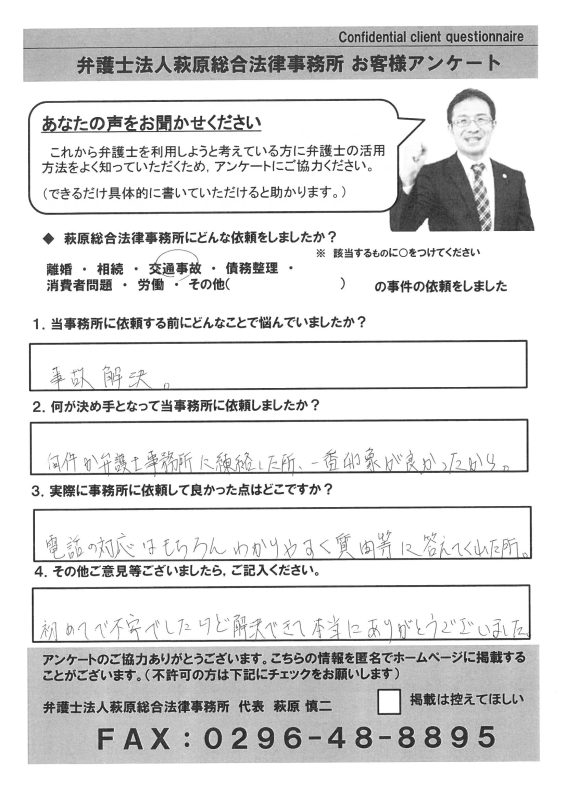 Confidential client questionnaire
弁護士法人萩原総合法律事務所 お客様アンケート
あなたの声をお聞かせください
これから弁護士を利用しようと考えている方に弁護士の活用
方法をよく知っていただくため，アンケートにご協力ください。
（できるだけ具体的に書いていただけると助かります。）
◆ 萩原総合法律事務所にどんな依頼をしましたか？
※ 該当するものに○をつけてください
離婚 ・ 相続 ・ 交通事故 ・ 債務整理 ・
消費者問題 ・ 労働 ・ その他( ) の事件の依頼をしました
1．当事務所に依頼する前にどんなことで悩んでいましたか？
事故解決。
2．何が決め手となって当事務所に依頼しましたか？
何件か弁護士事務所に連絡した所、一番印象が良かったから。
3．実際に事務所に依頼して良かった点はどこですか？
電話の対応はもちろんわかりやすく質問等に答えてくれた所。
4．その他ご意見等ございましたら，ご記入ください。
初めてで不安でしたけど解決できて本当にありがとうございました。
アンケートのご協力ありがとうございます。こちらの情報を匿名でホームページに掲載する
ことがございます。（不許可の方は下記にチェックをお願いします）
弁護士法人萩原総合法律事務所 代表 萩原 慎二
掲載は控えてほしい
FAX：0296-48-8895